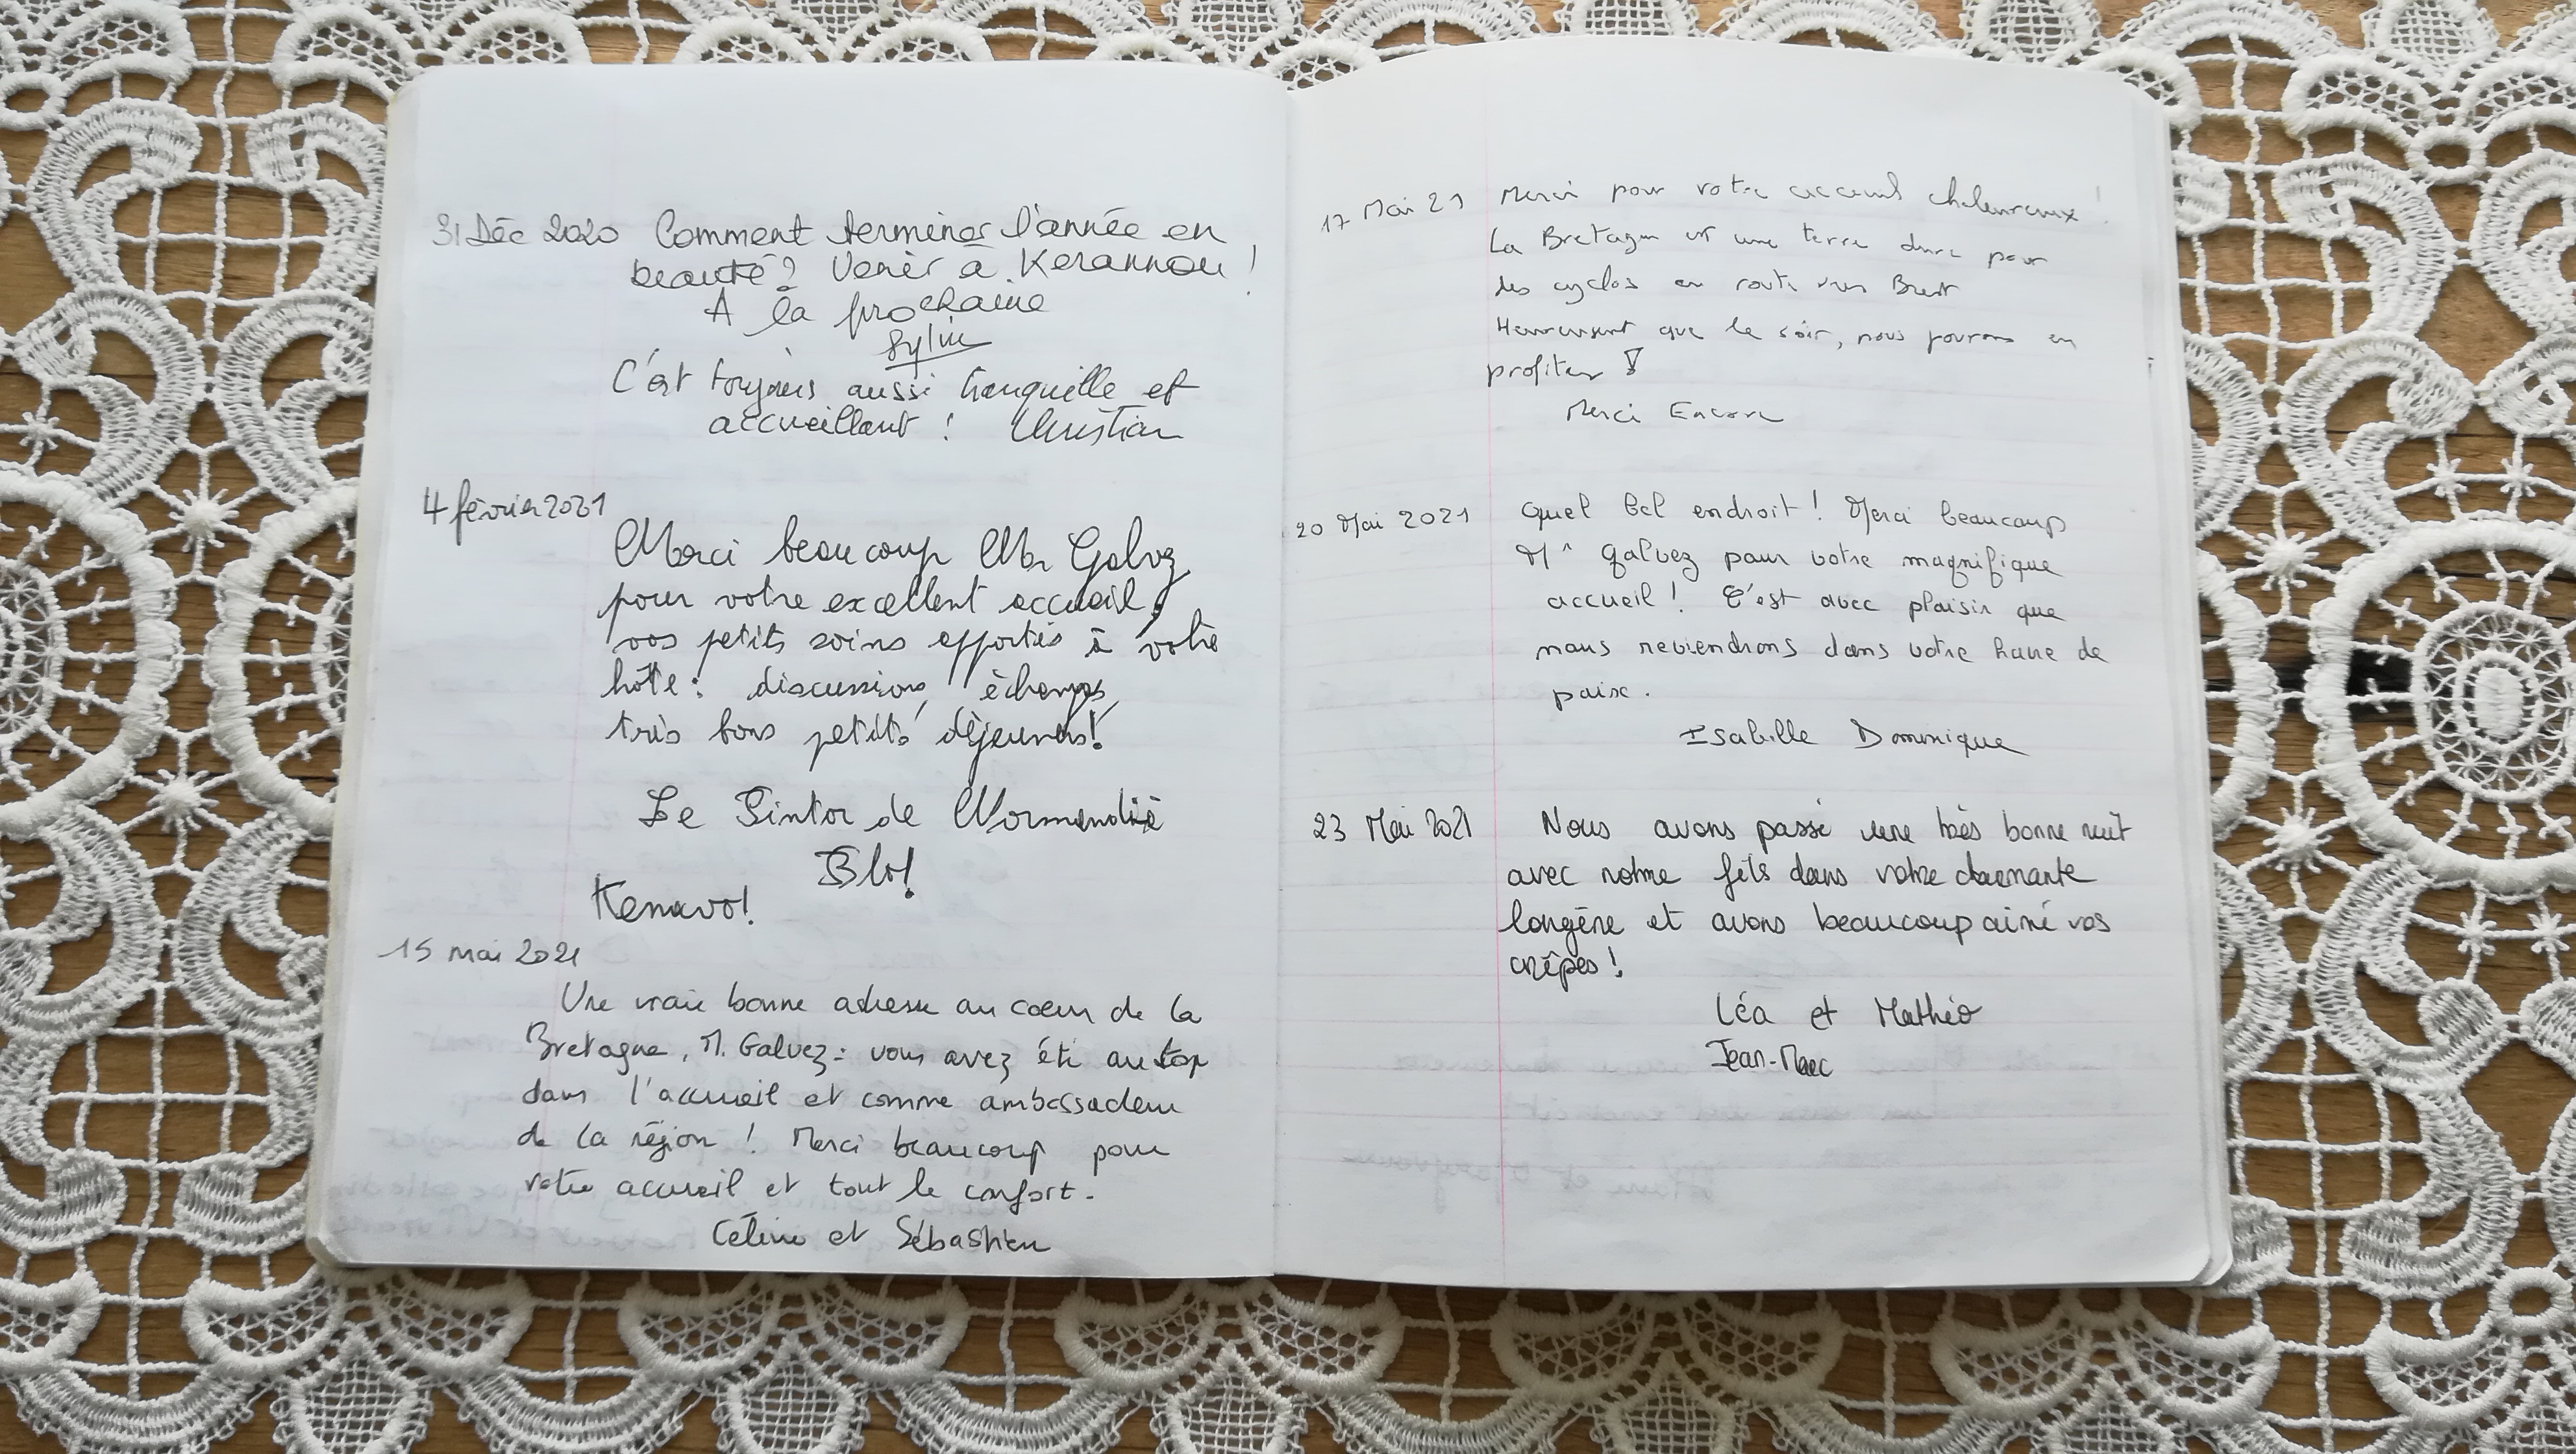 31 Déc 2020 Comment terminer l'année en
beauté ? Venir à Kerannou !
A la prochaine
Sylvie
C'est toujours aussi tranquille et
accueillant ! Christian
4 février 2021
Merci beaucoup Mr Galvez
pour votre excellent accueil,
vos petits soins apportés à votre
hôte : discussions, échanges,
très bons petits déjeuners !
Le de Normandie
Kenavo !
15 mai 2021
Une vraie bonne adresse au coeur de la
Bretagne, M. Galvez : vous avez été au top
dans l'accueil et comme ambassadeur
de la région ! Merci beaucoup pour
votre accueil et tout le confort.
Céline et Sébastien
17 Mai 21 Merci pour votre acceuil chaleureux !
La Bretagne est une terre dure pour
des cyclos en route vers Brest
Heureusement que le soir, nous pouvons en
profiter !
Merci Encore
20 Mai 2021 Quel bel endroit ! Merci beaucoup
Mr Galvez pour votre magnifique
accueil ! C'est avec plaisir que
nous reviendrons dans votre havre de
paix.
Isabelle Dominique
23 Mai 2021 Nous avons passé une très bonne nuit
avec notre fils dans votre charmante
longère et avons beaucoup aimé vos
crêpes !
Léa et Mathéo
Jean-Marc